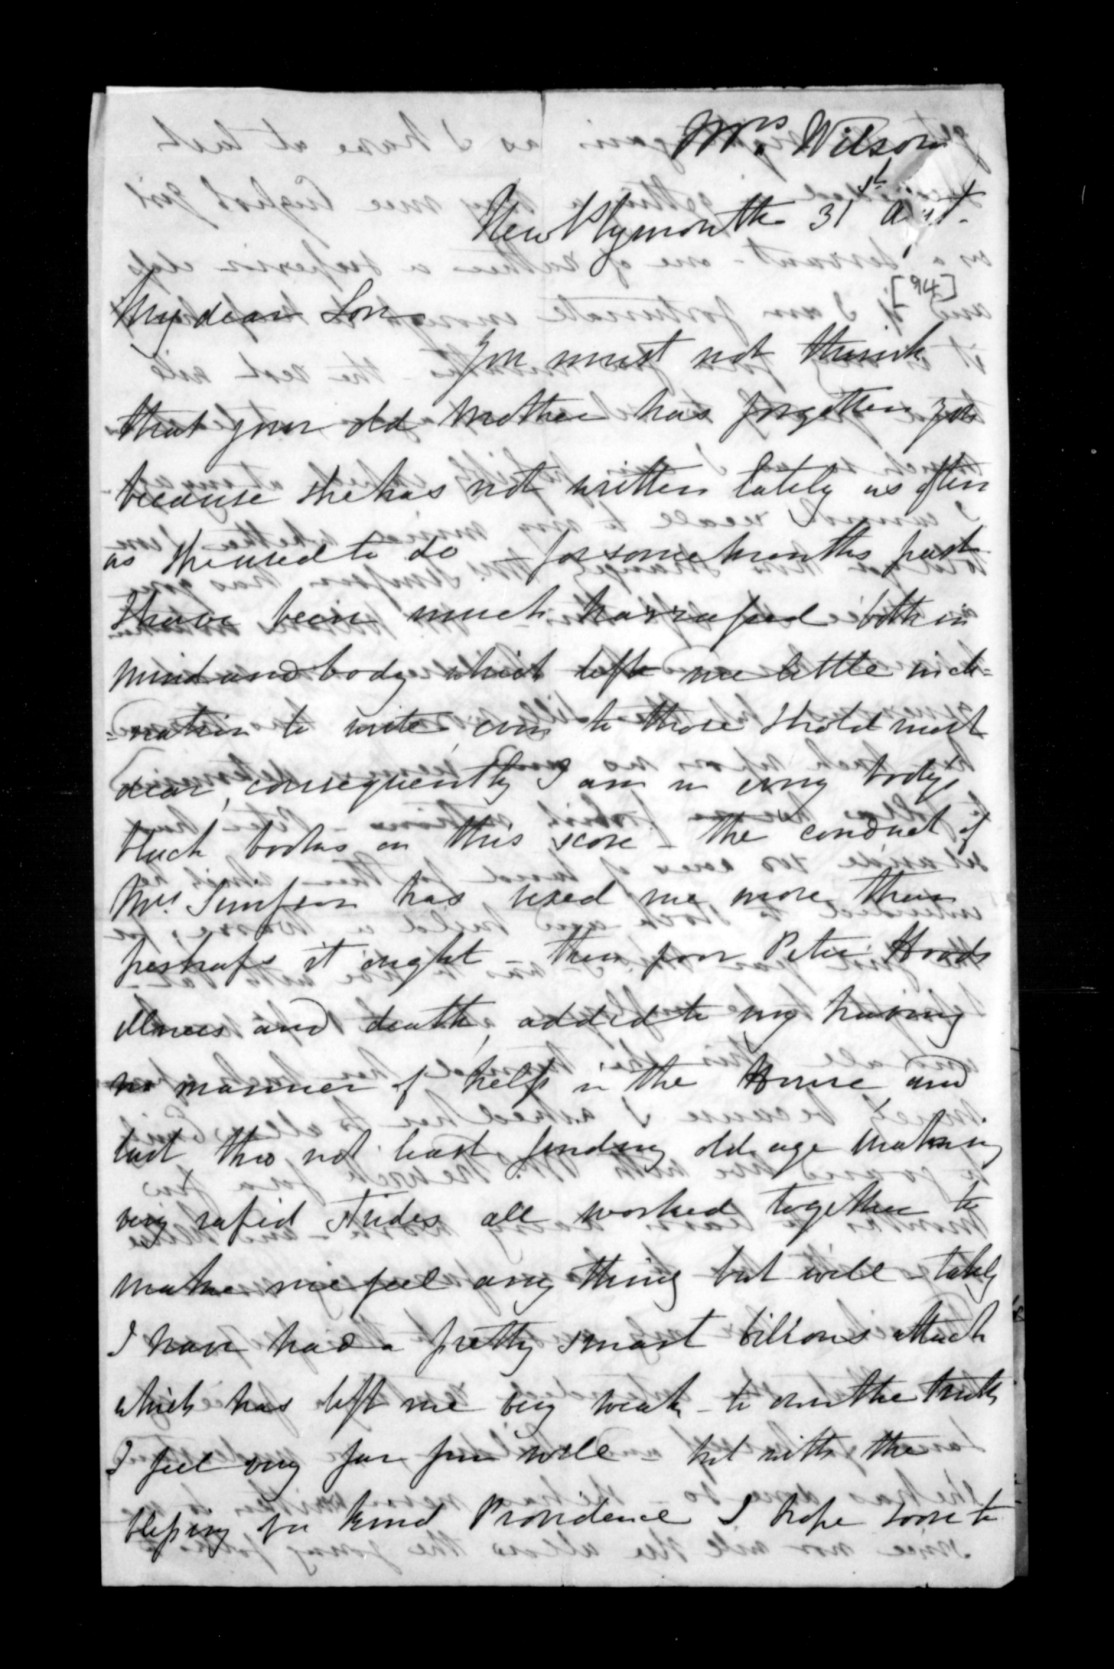 Mrs. Wilson
New Plymouth 31st Augt.
[94]
My dear Son,
You must not think
that your old Mother has forgotten you
because she has not written lately as often
as she used to do - for some months past
I have been much harrassed both in
mind and body which left me little incli-
-nation to write even to those I hold most
dear, consequently I am in every bodys
black books on this score - the conduct of
Mrs. Simpson has vexed me more than
perhaps it ought - then poor Peter Hoods
illness and death, added to my having
no manner of help in the House, and
last, tho not least finding old age making
very rapid strides all worked together to
make me feel any thing but well - lately
I have had a pretty smart bilious attack
which has left me very weak - to own the truth
I feel very far from well but with the
blessing of a kind Providence I hope soon to